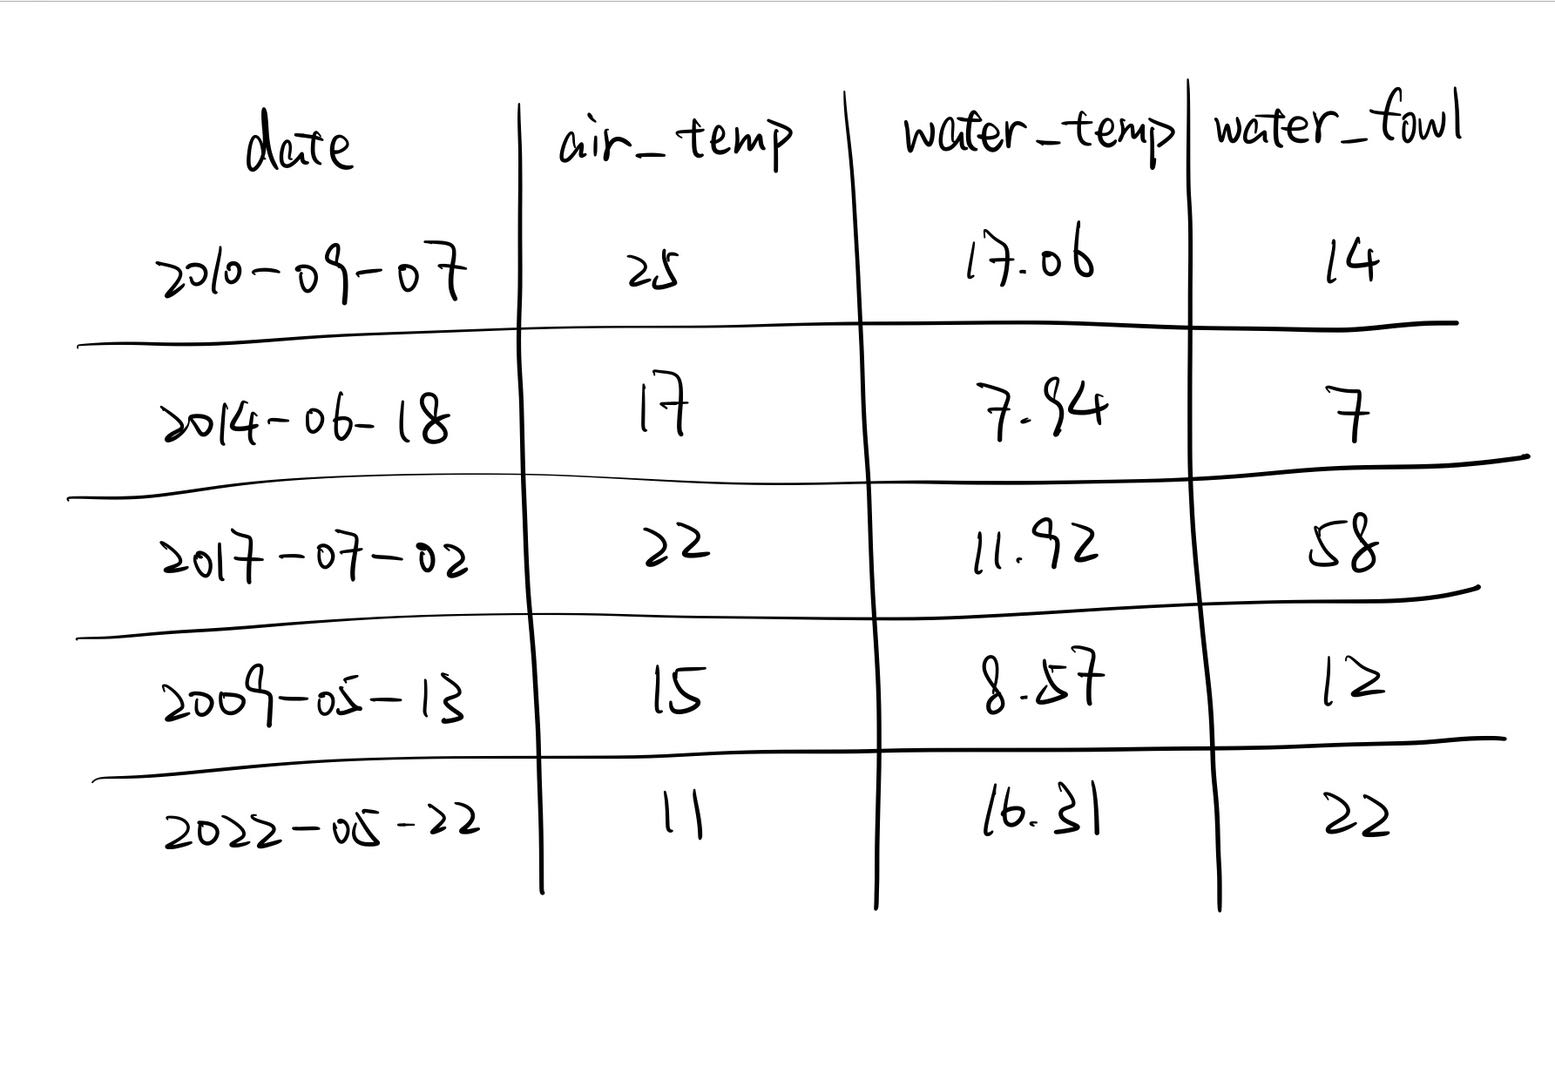 date air_temp water_temp water_fowl
2010-09-07 25 17.06 14
2014-06-18 17 7.94 7
2017-07-02 22 11.92 58
2009-05-13 15 8.57 12
2022-05-22 11 16.31 22